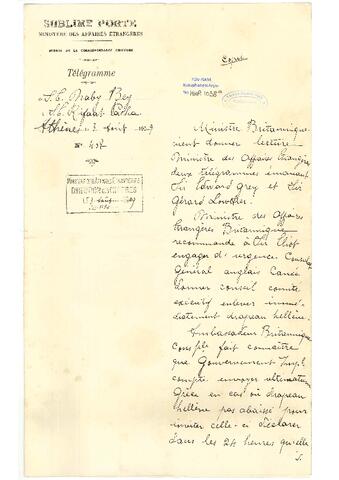 SUBLIME PORTE
MINISTÈRE DES AFFAIRES ÉTRANGÈRES
Télégramme
Copie
S.E. Naby Bey
S.E. Rifaat Pacha
Athènes 1909
N° 457
Ministre Britannique
vient donner lecture
Ministre des Affaires Etrangères
deux télégrammes émanant
Sir Edward Grey et Sir
Gérard Lowther.
Ministre des Affaires
Etrangères Britannique
recommande à Sir Eliot
engager d'urgence Consul
Général anglais Canée
donner conseil comité
exécutif enlever immé-
diatement drapeau hellène.
Ambassadeur Britannique
Consple fait connaître
que Gouvernement Impl
compte envoyer ultimatum
Grèce en cas où drapeau
hellène pas abaissé pour
inviter celle-ci déclarer
dans les 24 heures qu'elle